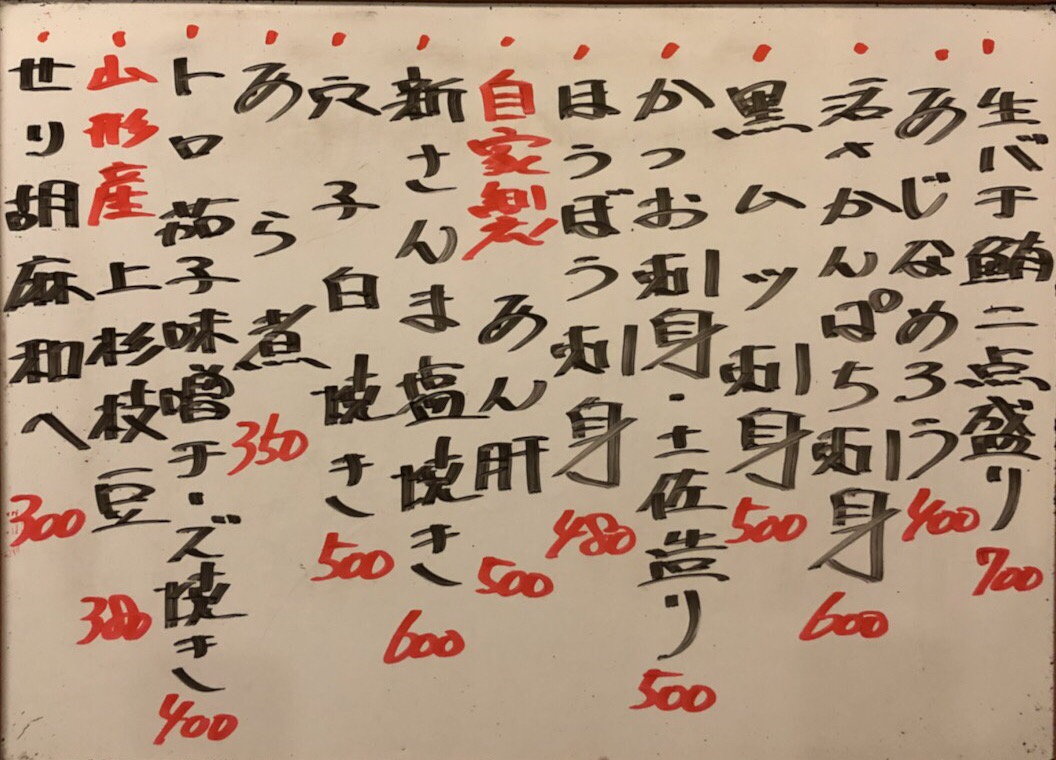 ・生バチ鮪二点盛り 700
・あじなめろう 400
・活〆かんぱち刺身 600
・黒ムツ刺身 500
・かつお刺身・土佐造り 500
・ほうぼう刺身 480
・自家製 あん肝 500
・新さんま塩焼き 600
・穴子白焼き 500
・あら煮 350
・トロ茄子味噌チーズ焼き 400
・山形産 上杉枝豆 380
・世り胡麻和へ 300